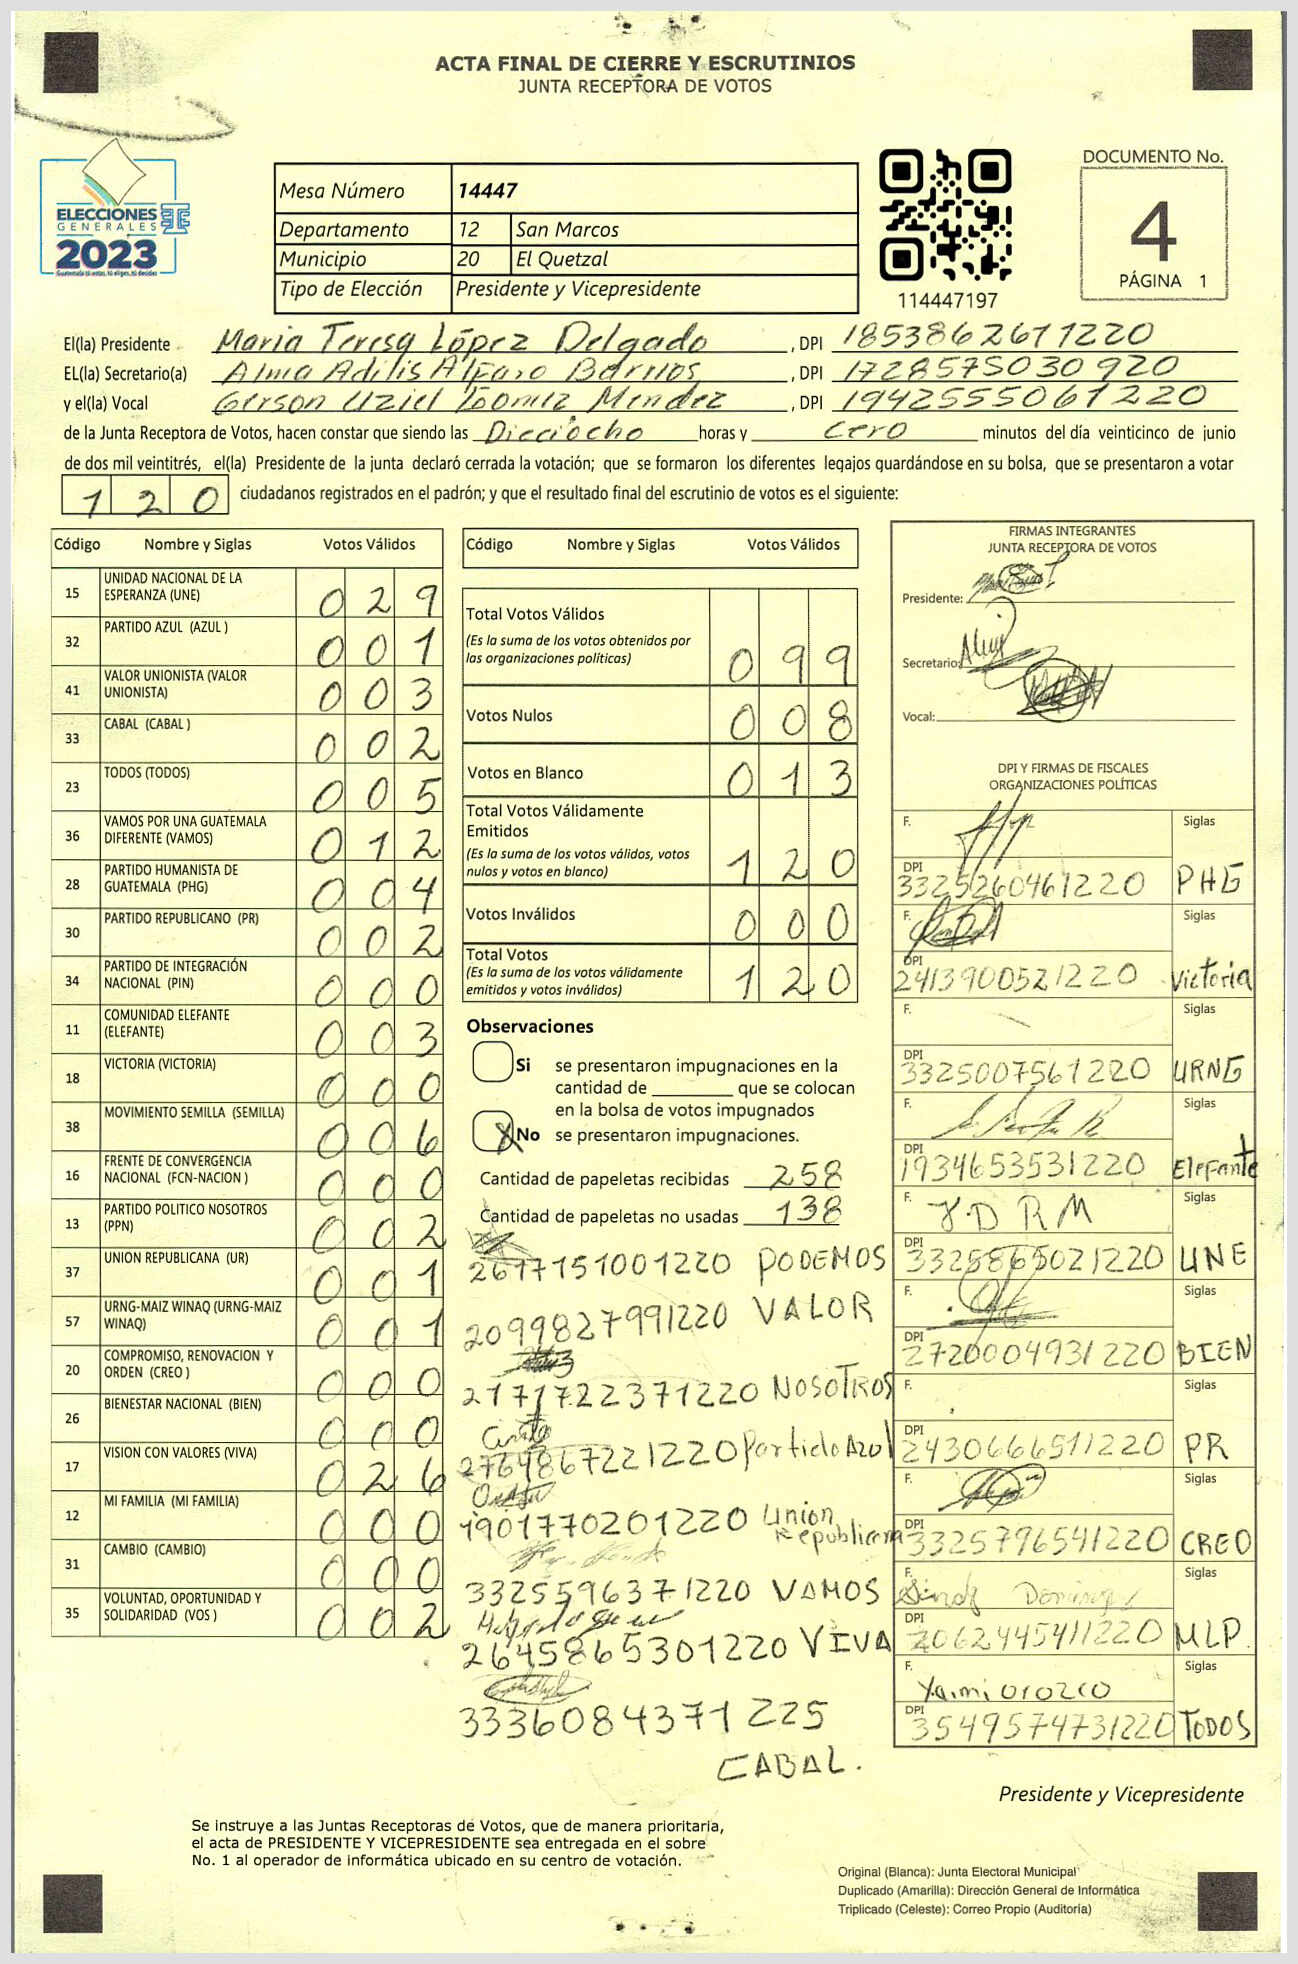 ACTA FINAL DE CIERRE Y ESCRUTINIOS
JUNTA RECEPTORA DE VOTOS
ELECCIONES
GENERALES
2023
Guatemala tú estás, tú eliges, tú decides
Mesa Número 14447
Departamento 12 San Marcos
Municipio 20 El Quetzal
Tipo de Elección Presidente y Vicepresidente
114447197
DOCUMENTO No.
4
PÁGINA 1
El(la) Presidente Maria Teresa López Delgado, DPI 1853862611220
EL(la) Secretario(a) Alma Adilis Alfaro Barrios, DPI 1728575030920
y el(la) Vocal Gerson Uziel Gómez Mendez, DPI 1942555061220
de la Junta Receptora de Votos, hacen constar que siendo las Dieciocho horas y cero minutos del día veinticinco de junio
de dos mil veintitrés, el(la) Presidente de la junta declaró cerrada la votación; que se formaron los diferentes legajos guardándose en su bolsa, que se presentaron a votar
120 ciudadanos registrados en el padrón; y que el resultado final del escrutinio de votos es el siguiente:
Código Nombre y Siglas Votos Válidos
15 UNIDAD NACIONAL DE LA ESPERANZA (UNE) 029
32 PARTIDO AZUL (AZUL ) 001
41 VALOR UNIONISTA (VALOR UNIONISTA) 003
33 CABAL (CABAL ) 002
23 TODOS (TODOS) 005
36 VAMOS POR UNA GUATEMALA DIFERENTE (VAMOS) 012
28 PARTIDO HUMANISTA DE GUATEMALA (PHG) 004
30 PARTIDO REPUBLICANO (PR) 002
34 PARTIDO DE INTEGRACIÓN NACIONAL (PIN) 000
11 COMUNIDAD ELEFANTE (ELEFANTE) 003
18 VICTORIA (VICTORIA) 000
38 MOVIMIENTO SEMILLA (SEMILLA) 006
16 FRENTE DE CONVERGENCIA NACIONAL (FCN-NACION ) 000
13 PARTIDO POLITICO NOSOTROS (PPN) 002
37 UNION REPUBLICANA (UR) 001
57 URNG-MAIZ WINAQ (URNG-MAIZ WINAQ) 001
20 COMPROMISO, RENOVACION Y ORDEN (CREO ) 000
26 BIENESTAR NACIONAL (BIEN) 000
17 VISION CON VALORES (VIVA) 026
12 MI FAMILIA (MI FAMILIA) 000
31 CAMBIO (CAMBIO) 000
35 VOLUNTAD, OPORTUNIDAD Y SOLIDARIDAD (VOS ) 002
Código Nombre y Siglas Votos Válidos
Total Votos Válidos
(Es la suma de los votos obtenidos por
las organizaciones políticas) 099
Votos Nulos 008
Votos en Blanco 013
Total Votos Válidamente
Emitidos
(Es la suma de los votos válidos, votos
nulos y votos en blanco) 120
Votos Inválidos 000
Total Votos
(Es la suma de los votos válidamente
emitidos y votos inválidos) 120
Observaciones
Si se presentaron impugnaciones en la
cantidad de que se colocan
en la bolsa de votos impugnados
X No se presentaron impugnaciones.
Cantidad de papeletas recibidas 258
Cantidad de papeletas no usadas 138
2617151001220 PODEMOS
2099827991220 VALOR
2171722371220 NOSOTROS
2764867221220 Partido Azul
1901770201220 Union Republicana
3325596371220 VAMOS
2645865301220 VIVA
3336084371225
CABAL.
FIRMAS INTEGRANTES
JUNTA RECEPTORA DE VOTOS
Presidente:
Secretario:
Vocal:
DPI Y FIRMAS DE FISCALES
ORGANIZACIONES POLÍTICAS
F. Siglas
DPI 3325260461220 PHG
F. Siglas
DPI 2413900521220 Victoria
F. Siglas
DPI 3325007561220 URNG
F. Siglas
DPI 1934653531220 Elefante
F. Y.D R M Siglas
DPI 3325865021220 UNE
F. Siglas
DPI 2720004931220 BIEN
F. Siglas
DPI 2430666511220 PR
F. Siglas
DPI 3325796541220 CREO
F. Sindy Siglas
DPI 2062445411220 MLP.
F. Yaimi Orozco Siglas
DPI 3549574731220 TODOS
Presidente y Vicepresidente
Se instruye a las Juntas Receptoras de Votos, que de manera prioritaria,
el acta de PRESIDENTE Y VICEPRESIDENTE sea entregada en el sobre
No. 1 al operador de informática ubicado en su centro de votación.
Original (Blanca): Junta Electoral Municipal
Duplicado (Amarilla): Dirección General de Informática
Triplicado (Celeste): Correo Propio (Auditoría)